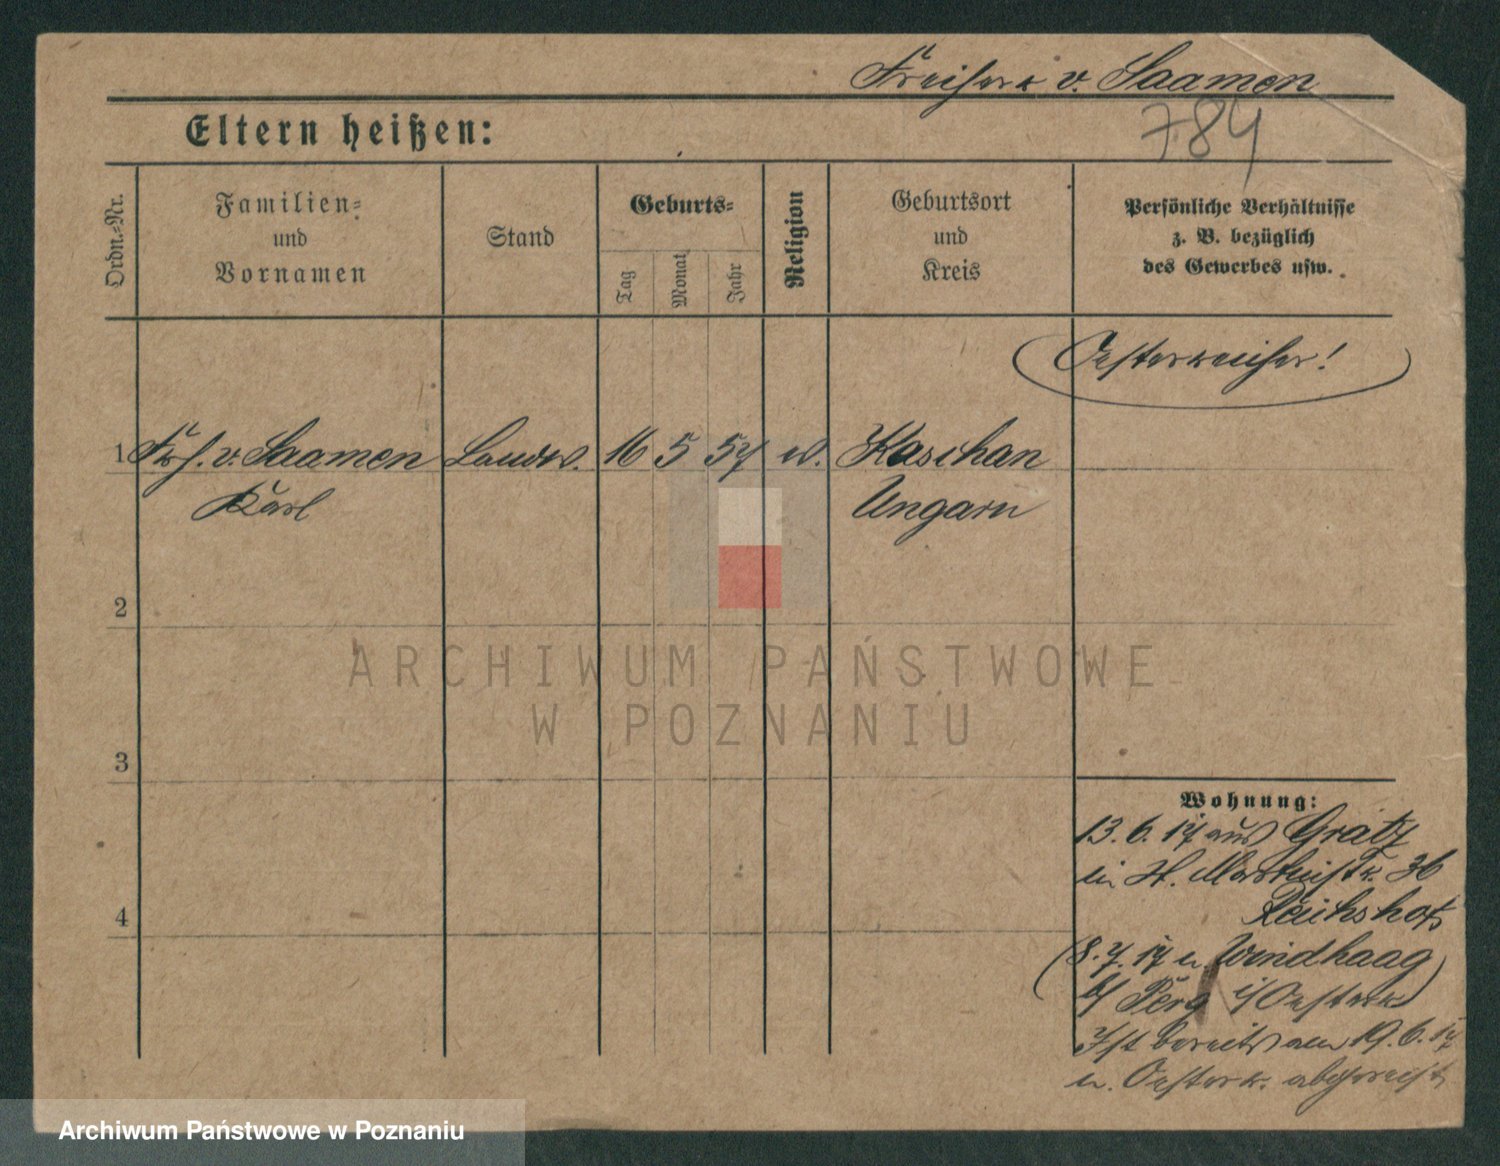 Freiherr v. Saamen
784
Eltern heißen:
Ordn.-Nr.
Familien-
und
Vornamen
Stand
Geburts-
Tag
Monat
Jahr
Religion
Geburtsort
und
Kreis
Persönliche Verhältnisse
z. B. bezüglich
des Gewerbes usw.
Oesterreicher!
1 Frh. v. Saamen Landw. 16 5 57 Kaschau
Karl Ungarn
2
3
4
Wohnung:
13. 6. 17 aus Grätz
in St. Martinstr. 36
Reichshof
(8. 7. 17 n. Windhaag)
b/ Perg i/ Oesterr.
Ist bereits am 19. 6. 17
n. Oesterr. abgereist
ARCHIWUM PAŃSTWOWE
W POZNANIU
Archiwum Państwowe w Poznaniu